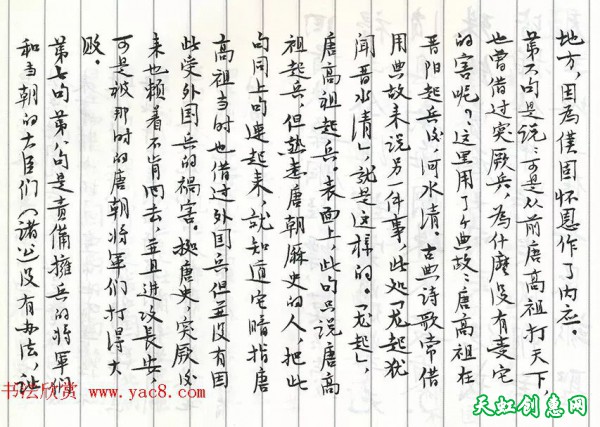 地方，因為僕固怀恩作了内应。
第六句是说：可是从前唐高祖打天下，
也曾借过突厥兵，為什麽没有受它
的害呢？这里用了个典故：唐高祖在
晋阳起兵后，河水清。古典诗歌常借
用典故来说另一件事，此处「龙起犹
闻晋水清」，就是这样的。「龙起」，
唐高祖起兵。表面上此句只说唐高
祖起兵，但熟悉唐朝厤史的人，把此
句同上句連起来，就知道它暗指唐
高祖当时也借过外国兵但並没有因
此受外国兵的禍害。拠唐史，突厥后
来也赖着不肯回去，並且進攻長安，
可是被那时的唐朝将軍们打得大
败。
第七句第八句是責備擁兵的将軍们
和当朝的大臣们（諸公）没有办法，
书法欣赏 www.yac8.com
天虹创意网